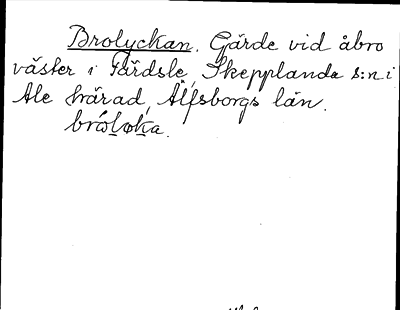 Brolyckan. Gärde vid åbro
väster i Färdsle, Skepplanda s:n i
Ale härad, Älfsborgs län.
bròlωka.